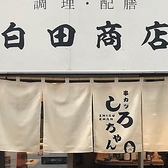 調理・配膳
白田商店
串カツ
しろちゃん
SHIRO CHAN